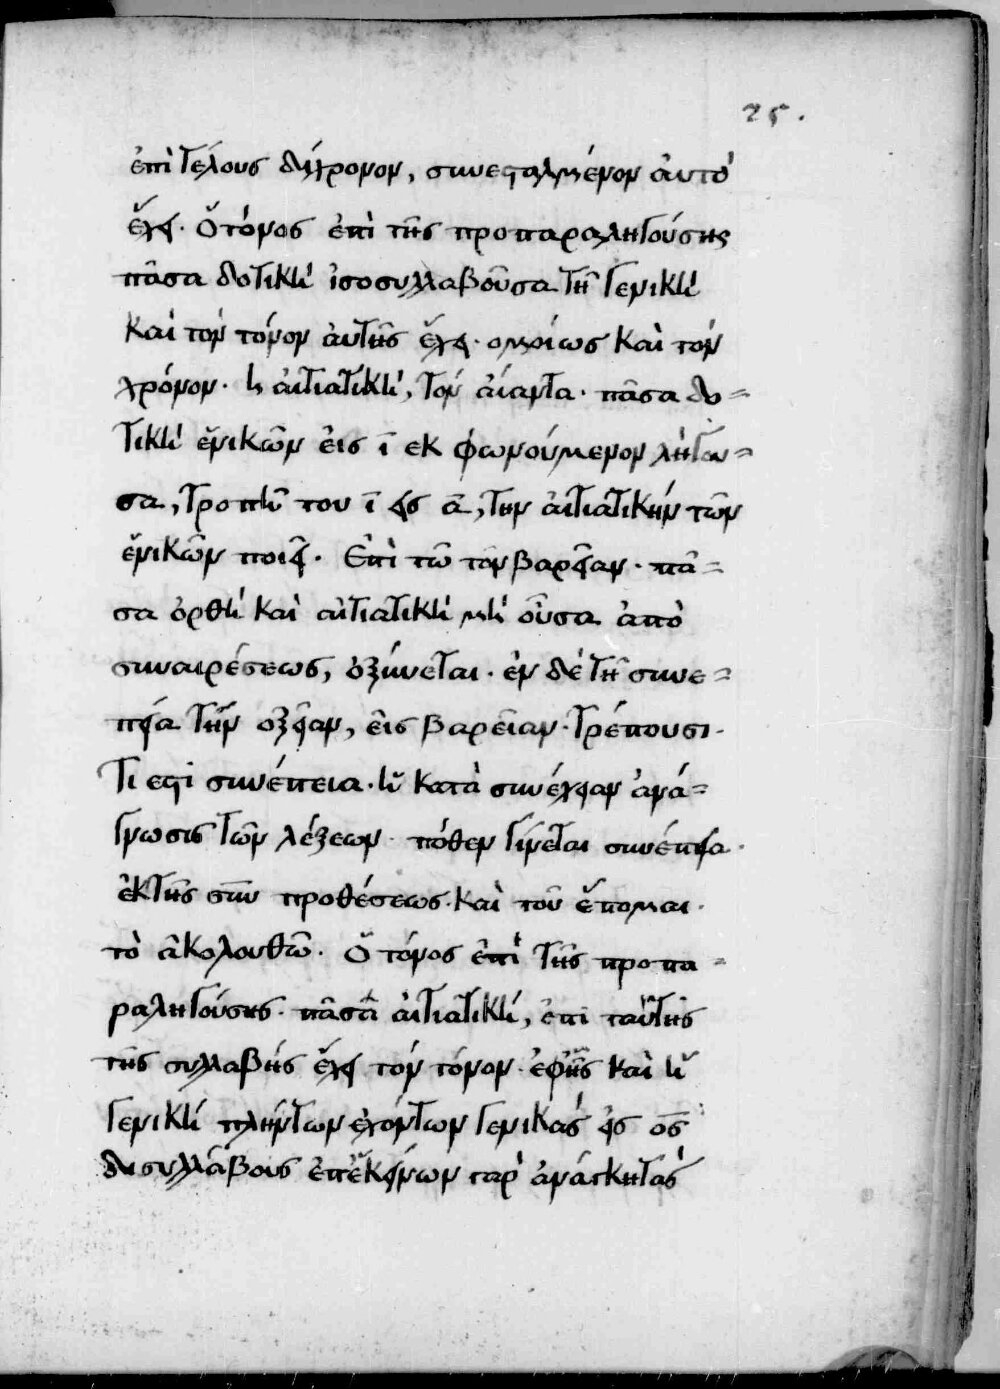 25.
ἐπὶ τέλους δίχρονον, συνεσταλμένον ἀυτὸ
ἔχει. Ὁ τόνος ἐπὶ τῆς προπαραληγούσης
πᾶσα δοτικὴ ἰσοσυλλαβοῦσα τῆ γενικῆ
καὶ τὸν τόνον ἀυτῆς ἔχει. ομοίως καὶ τὸν
χρόνον. ἡ ἀιτιατικὴ, τὸν ἀίαντα. πᾶσα δο=
τικὴ ἑνικῶν ἐις ϊ εκφωνούμενον λήγου=
σα, τροπῆ του ϊ εις α, την ἀιτιατικὴν τῶν
ἑνικῶν ποιεῖ. Ἐπὶ τῶ τὸν βαρεῖαν. πᾶ=
σα ὀρθὴ καὶ αἰτιατικὴ μὴ οὖσα ἀπὸ
συναιρέσεως, ὀξύνεται. ἐν δὲ τῆ συνε=
πεία τὴν οξεῖαν, εἰς βαρεῖαν τρέπουσι.
Τι εστὶ συνέπεια. ἡ κατὰ συνέχειαν ἀνά=
γνωσις τῶν λέξεων. πόθεν γίνεται συνέπεια.
ἐκ τῆς σὺν προθέσεως. καὶ τοῦ ἕπομαι.
τὸ ἀκολουθῶ. Ὁ τόνος ἐπὶ τῆς προπα=
ραληγούσης. πᾶσα ἀιτιατικὴ, ἐπὶ ταύτης
τῆς συλλαβῆς ἔχει τὸν τόνον. ἐφῆς καὶ ἡ
γενικὴ πλὴν των ἐχόντων γενικὰς εἰς ος
δισυλλάβους ἐπ ἐκείνων γαρ ἀνάγκη τὰς